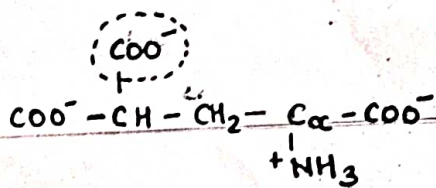 COO⁻
COO⁻ – CH – CH₂ – Cα – COO⁻
+NH₃